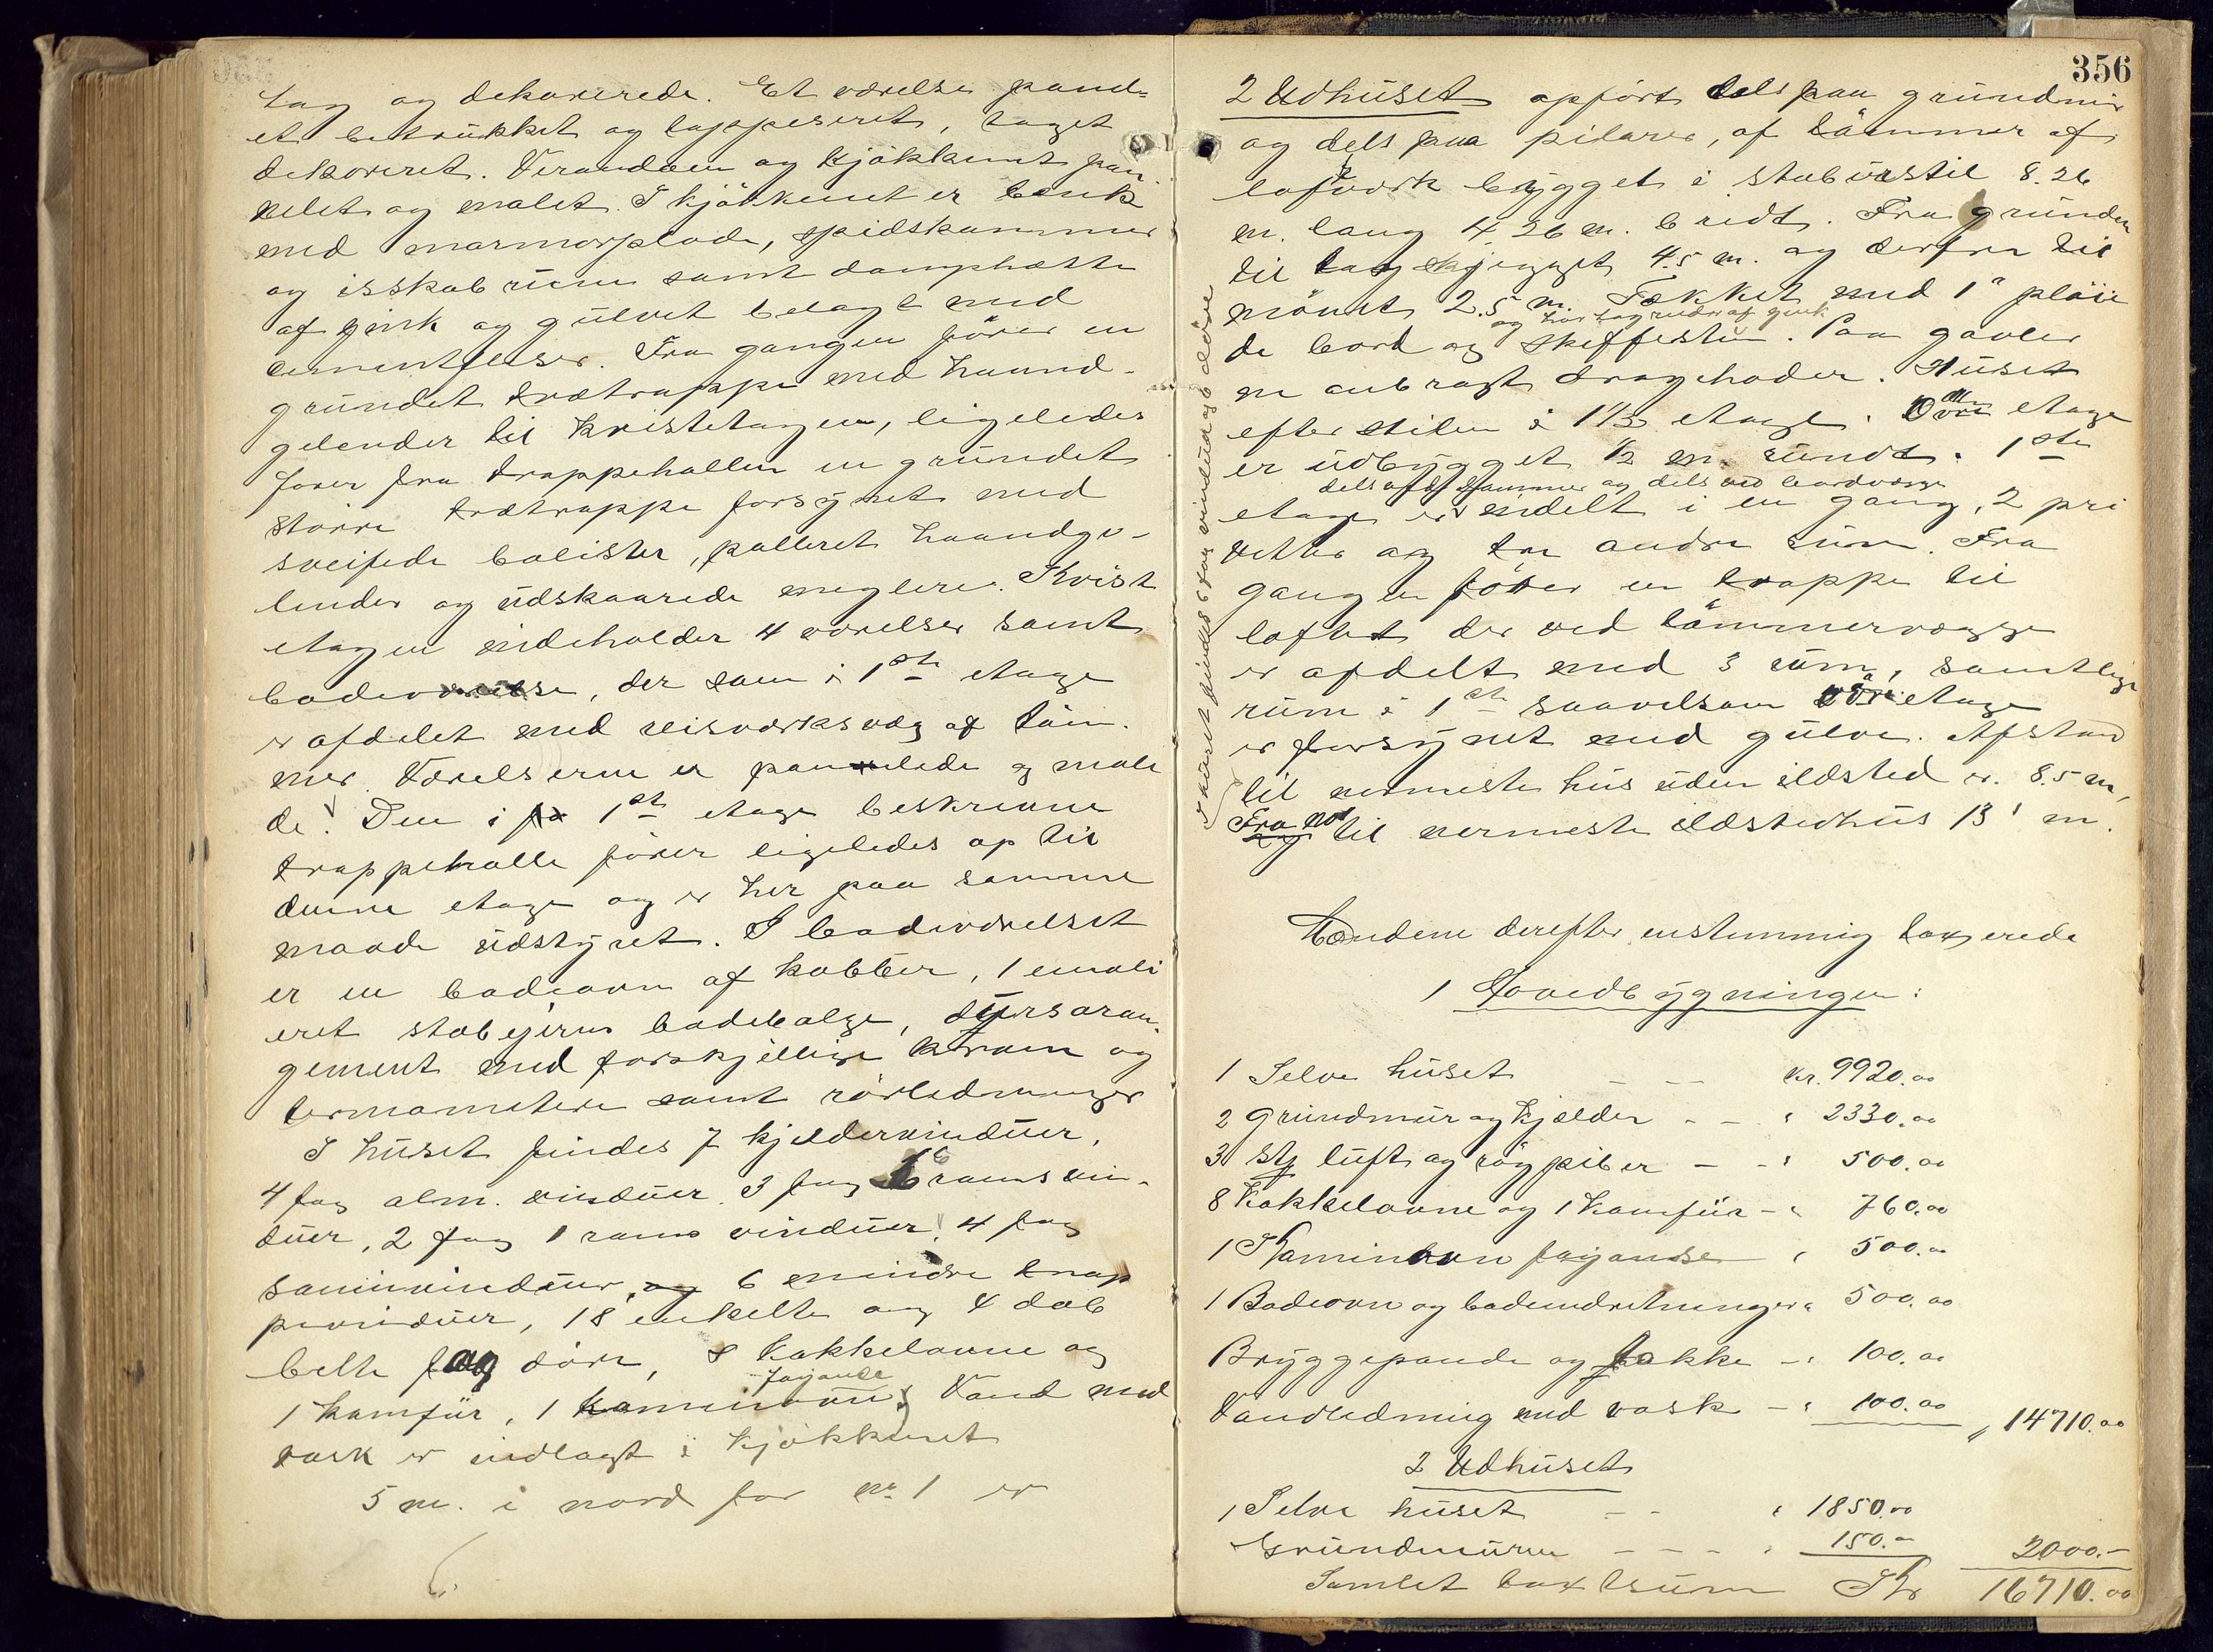 tag og dekorerede. Et værelse pand=
et betrukket og tappeseret, taget
dekoreret. Verandaen og kjökkenet pan
nelet og malet. I kjökkenet er bænk
med marmorplade, spidskammer
og isskab rum samt damphætte
af zink og gulvet belagt med
cementfliser. Fra gangen förer en
grundet trætrappe med haand-
gelender til kvistetagen, ligeledes
förer fra trappehallen en grundet
större trætrappe forsynet med
sveifede balister, polleret haandge-
lender og udskaarede meglere. Kvist
etagen indeholder 4 værelser samt
badeværelse, der som i 1ste etage
er afdelet med reisværksvæg af töm.
mer. Værelserne er pannelede og male
de. Den i 1ste etage beskrevne
trappehalle förer ligeledes op til
denne etage og er her paa samme
maade udstyret. I badeværelset
er en badeovn af kobber, 1 emali
eret stobejerns badebalge, dysaran-
gement med forskjellige kraner og
termometere samt rörledninger
I huset findes 7 kjeldervinduer,
4 fag alm. vinduer 3 fag 6 rams vin-
duer, 2 fag 1 rams vinduer, 4 fag
vinduer, og 6 mindre knap
pevinduer, 18 enkelte og 4 dob
belte fag döre, 8 kakkelovne og
fajanse
1 kamfür, 1 kaminovn. Vand med
vask er indlagt i kjökkenet
5 m. i nord for no 1 er
356
2 Udhuset opfört dels paa grundmur
og dels paa pilarer, af tömmer af
loftværk bygget i stabürstil 8.26
m. lang 4.26 m. bredt. Fra grunden
til tagskjegget 4.5 m. og derfra til
mönet 2.5 m. Tækket med 1" plöie
og har tagrender af zink
de bord og skiffersten. Paa gavler
ne anbragt dragehoder. Huset
efter stilen i 1½ etage. Övre etage
er udbygget ½ m. rundt. 1ste
dels af tömmer og dels ved bordvægge
etage er inddelt i en gang, 2 pri
vetter og tre andre rum. Fra
gangen förer en trappe til
loftet der ved tömmervægge
er afdelt med 3 rum, samtlige
rum i 1ste saavelsom övre etage
er forsynet med gulve. Afstand
til nermeste hus uden ildsted er. 8.5 m,
Fra no 1 til nermeste ildstedhus 13 m.
I huset findes 6 fag vinduer og 6 döre
Mændene derefter enstemmig taxerede
1 Hovedbygningen:
1 Selve huset - - - kr. 9920.00
2 Grundmür og kjelder - - " 2330.00
3 stk luft og rög piber - - " 500.00
8 Kakkelovne og 1 Kamfür - " 760.00
1 Kaminovn fajanse " 500.00
1 Badeovn og badeindretninger " 500.00
Bryggepande og bakke - " 100.00
Vandledning med vask - " 100.00 " 14710.00
2 Udhuset
1 Selve huset - - " 1850.00
Grundmuren - - - " 150.- 2000.-
Samlet taxtsum Kr 16710.00